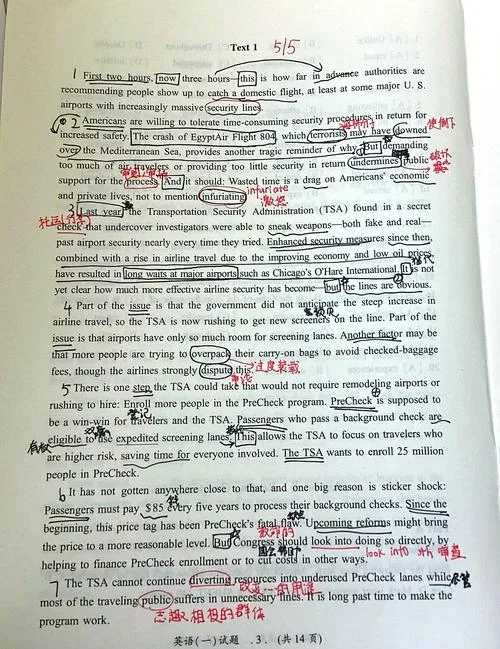 Text 1 5/5
1 First two hours, now three hours—this is how far in advance authorities are
recommending people show up to catch a domestic flight, at least at some major U. S.
airports with increasingly massive security lines.
2 Americans are willing to tolerate time-consuming security procedures in return for
increased safety. The crash of EgyptAir Flight 804, which terrorists may have downed
over the Mediterranean Sea, provides another tragic reminder of why. But demanding
too much of air travelers or providing too little security in return undermines public
support for the process. And it should: Wasted time is a drag on Americans' economic
and private lives, not to mention infuriating.
infuriate
激怒
3 Last year, the Transportation Security Administration (TSA) found in a secret
check that undercover investigators were able to sneak weapons—both fake and real—
past airport security nearly every time they tried. Enhanced security measures since then,
combined with a rise in airline travel due to the improving economy and low oil prices,
have resulted in long waits at major airports such as Chicago's O'Hare International. It is not
yet clear how much more effective airline security has become—but the lines are obvious.
4 Part of the issue is that the government did not anticipate the steep increase in
airline travel, so the TSA is now rushing to get new screeners on the line. Part of the
issue is that airports have only so much room for screening lanes. Another factor may be
that more people are trying to overpack their carry-on bags to avoid checked-baggage
fees, though the airlines strongly dispute this.
过度装载
5 There is one step the TSA could take that would not require remodeling airports or
rushing to hire: Enroll more people in the PreCheck program. PreCheck is supposed to
登记
be a win-win for travelers and the TSA. Passengers who pass a background check are
双赢
eligible to use expedited screening lanes. This allows the TSA to focus on travelers who
有权
are higher risk, saving time for everyone involved. The TSA wants to enroll 25 million
people in PreCheck.
6 It has not gotten anywhere close to that, and one big reason is sticker shock:
Passengers must pay $85 every five years to process their background checks. Since the
beginning, this price tag has been PreCheck's fatal flaw. Upcoming reforms might bring
致命的
the price to a more reasonable level. But Congress should look into doing so directly, by
look into 调查
helping to finance PreCheck enrollment or to cut costs in other ways.
7 The TSA cannot continue diverting resources into underused PreCheck lanes while
尽管
most of the traveling public suffers in unnecessary lines. It is long past time to make the
program work.
志趣相投的群体
英语(一)试题 .3. (共14页)